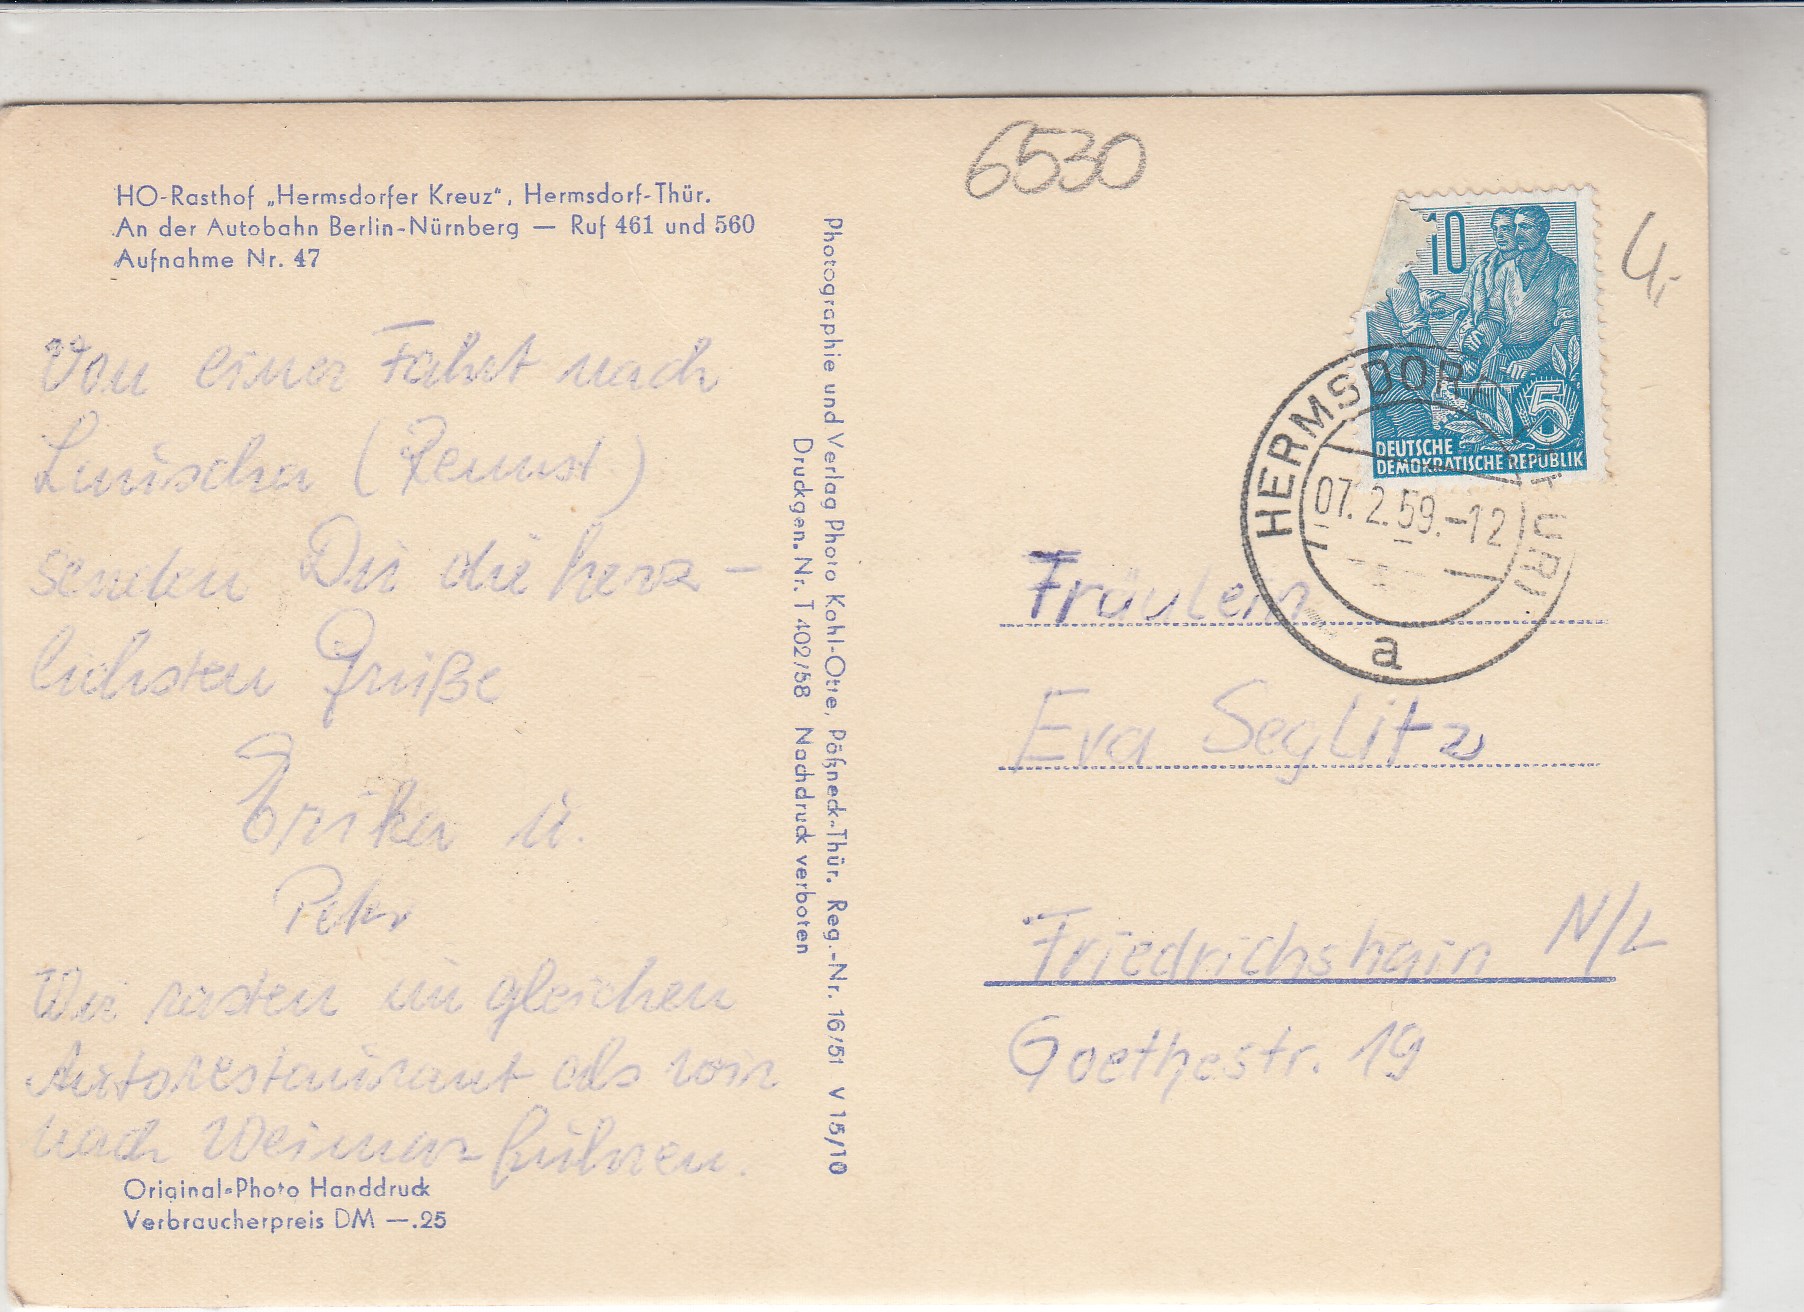 6530
HO-Rasthof „Hermsdorfer Kreuz“, Hermsdorf-Thür.
An der Autobahn Berlin-Nürnberg — Ruf 461 und 560
Aufnahme Nr. 47
Von einer Fahrt nach
senden Dir die herz-
lichsten Grüße
Erika u.
Peter
Wir rasten im gleichen
Autorestaurant als wir
nach Weimar fuhren.
Original-Photo Handdruck
Verbraucherpreis DM —.25
Photographie und Verlag Photo Kahl-Otte, Pößneck-Thür. Reg.-Nr. 16/51 V 15/10
Druckgen. Nr. T 402/58 Nachdruck verboten
10
5
DEUTSCHE
DEMOKRATISCHE REPUBLIK
4,-
HERMSDORF (THÜR)
07.2.59.-12
a
Fräulein
Eva Seglitz
Friedrichshain N/L
Goethestr. 19